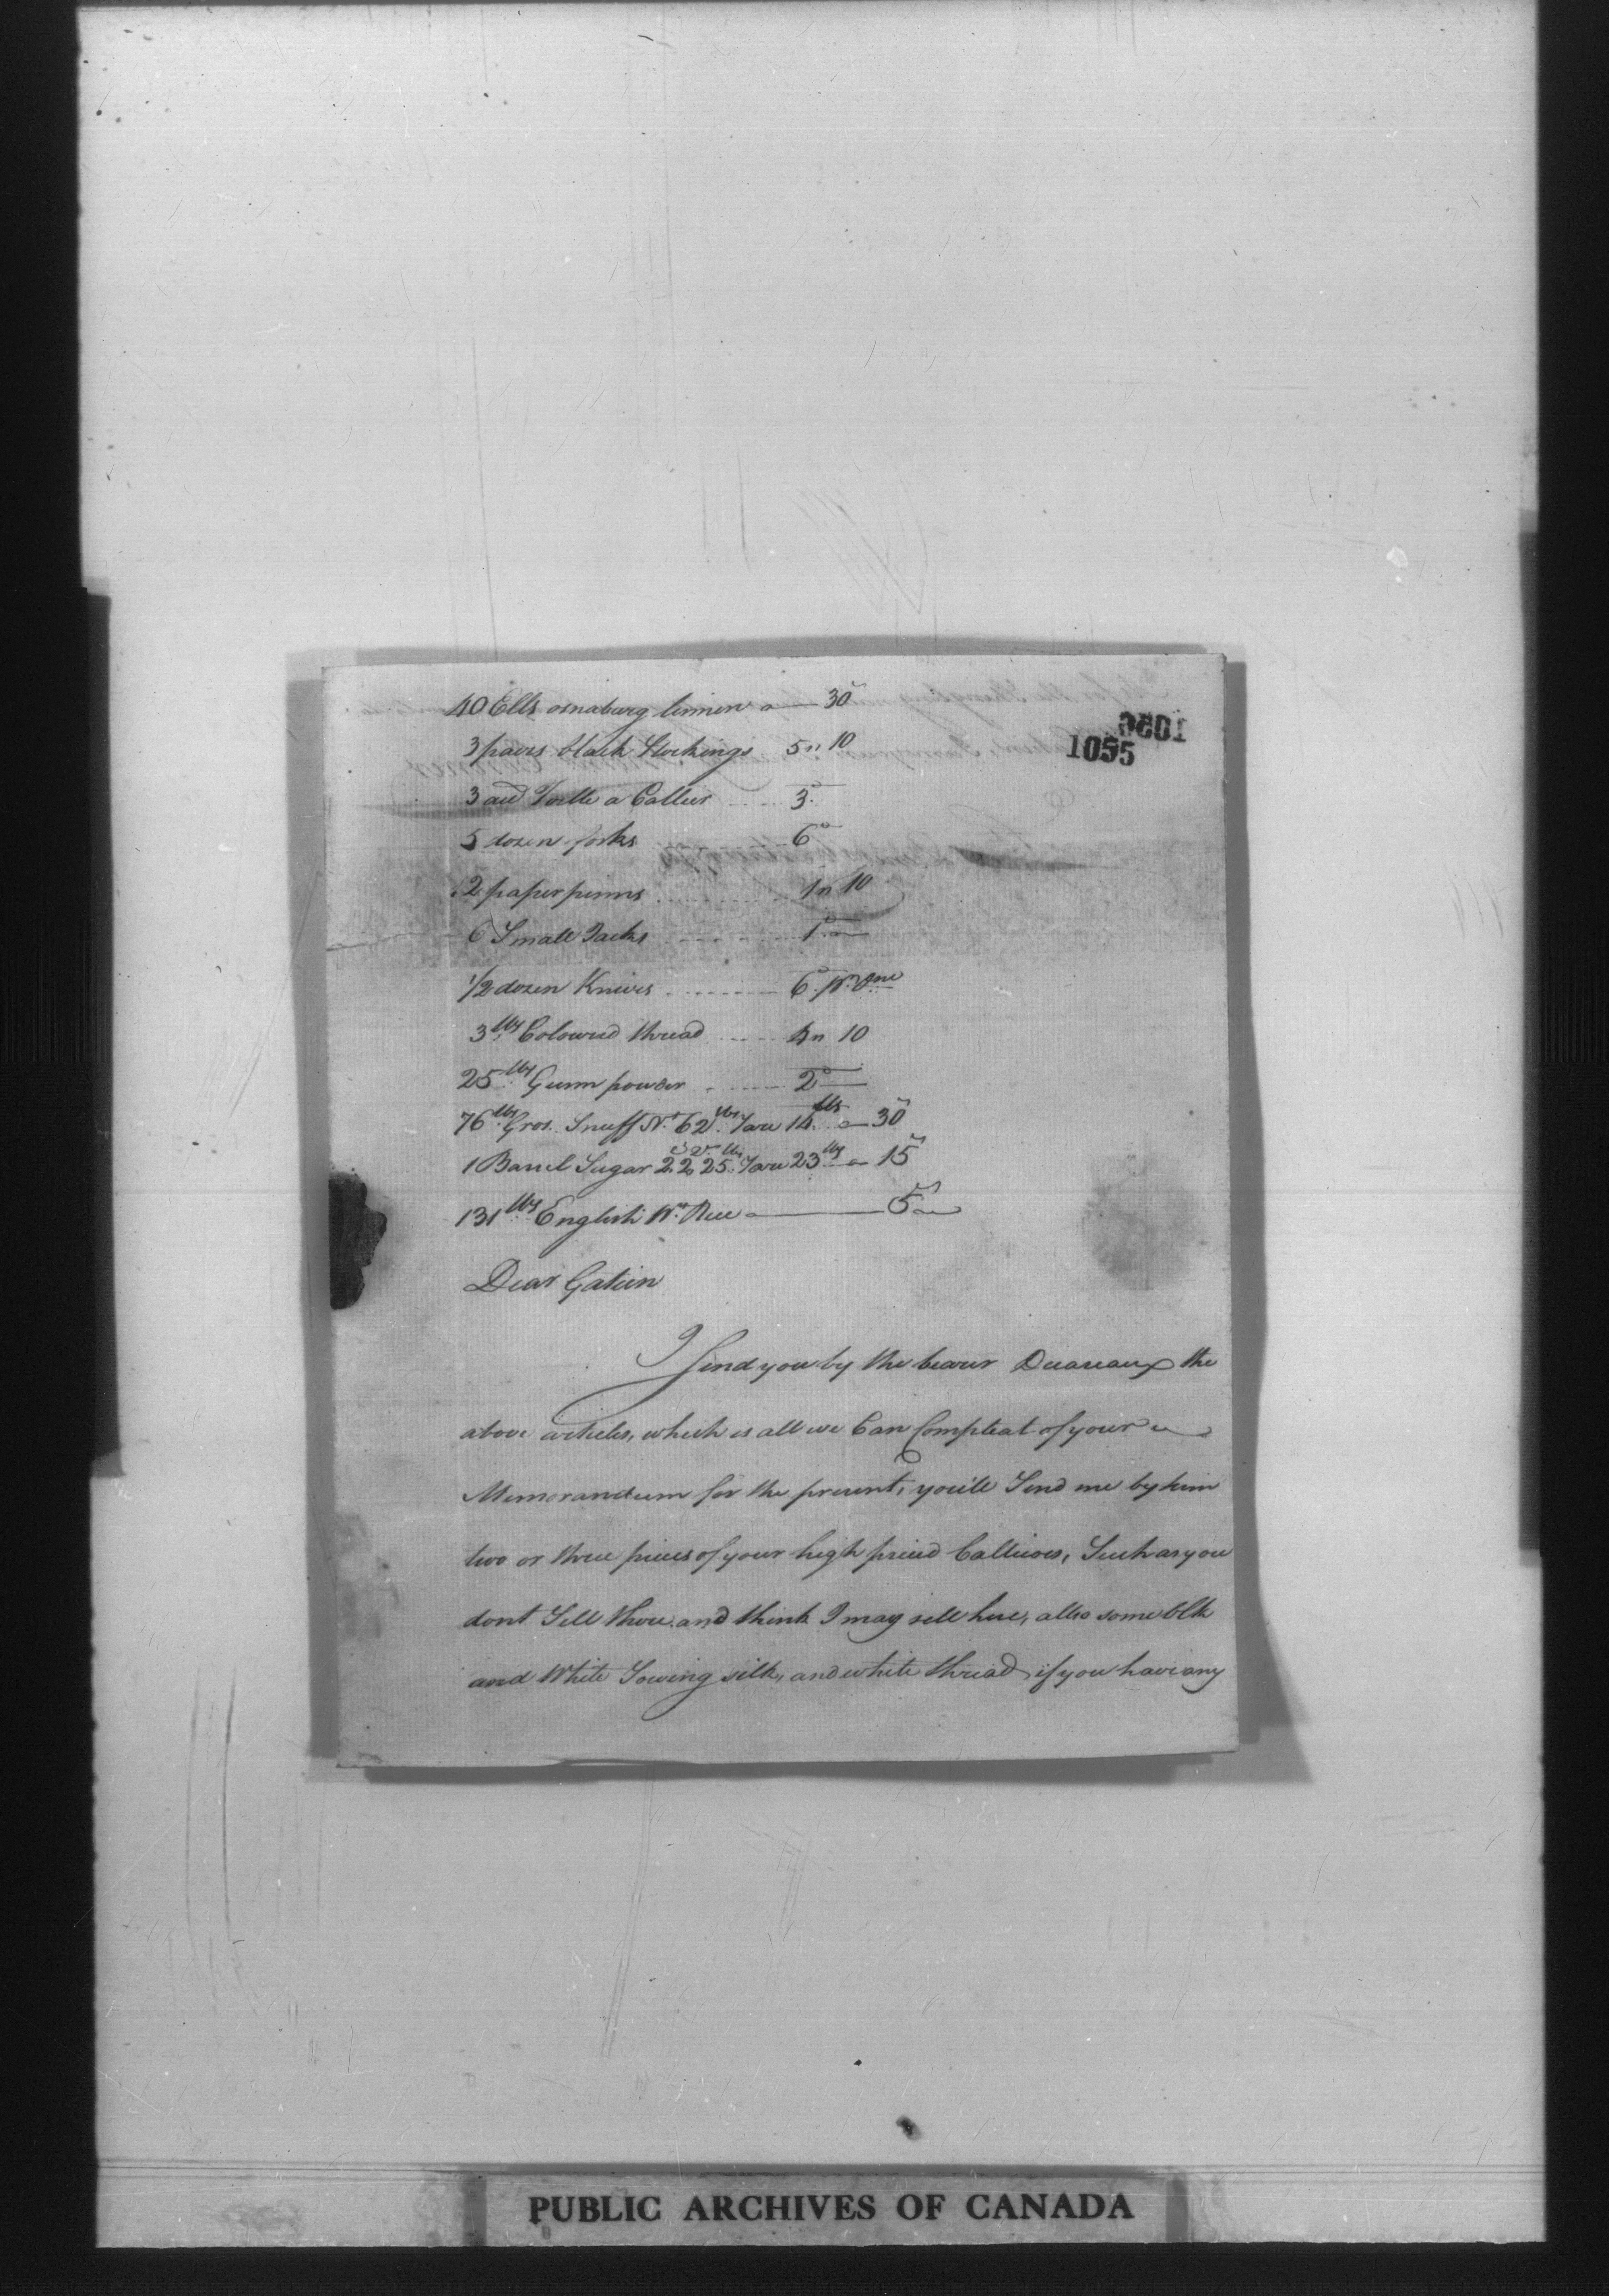 40 Ells osnaburg linnen a — 30
1055
3 pairs black Stockings 5 " 10
3 a Callier .... 3
5 dozen forks ........ 6
2 paper pinns ........ 1 " 10
6 Small Jacks ........ 1
1/2 dozen Knives ........ 6
3 lbs Coloured thread .... 4 " 10
25 lbs Gunn powder .... 2
76 lbs Gros. Snuff Nt. 62 lbs Tare 14 lbs a — 30
1 Barrel Sugar 2.2.25 Tare 23 lbs a 15
131 lbs English Wt. Rice a — 5
Dear Gatien
I Send you by the bearer the
above articles, which is all we Can Compleat of your
Memorandum for the present, you'll Send me by him
two or three pieces of your high priced Callicoes, Such as you
dont Sell there, and think I may sell here, allso some blk
and White Sowing silk, and white thread if you have any
PUBLIC ARCHIVES OF CANADA